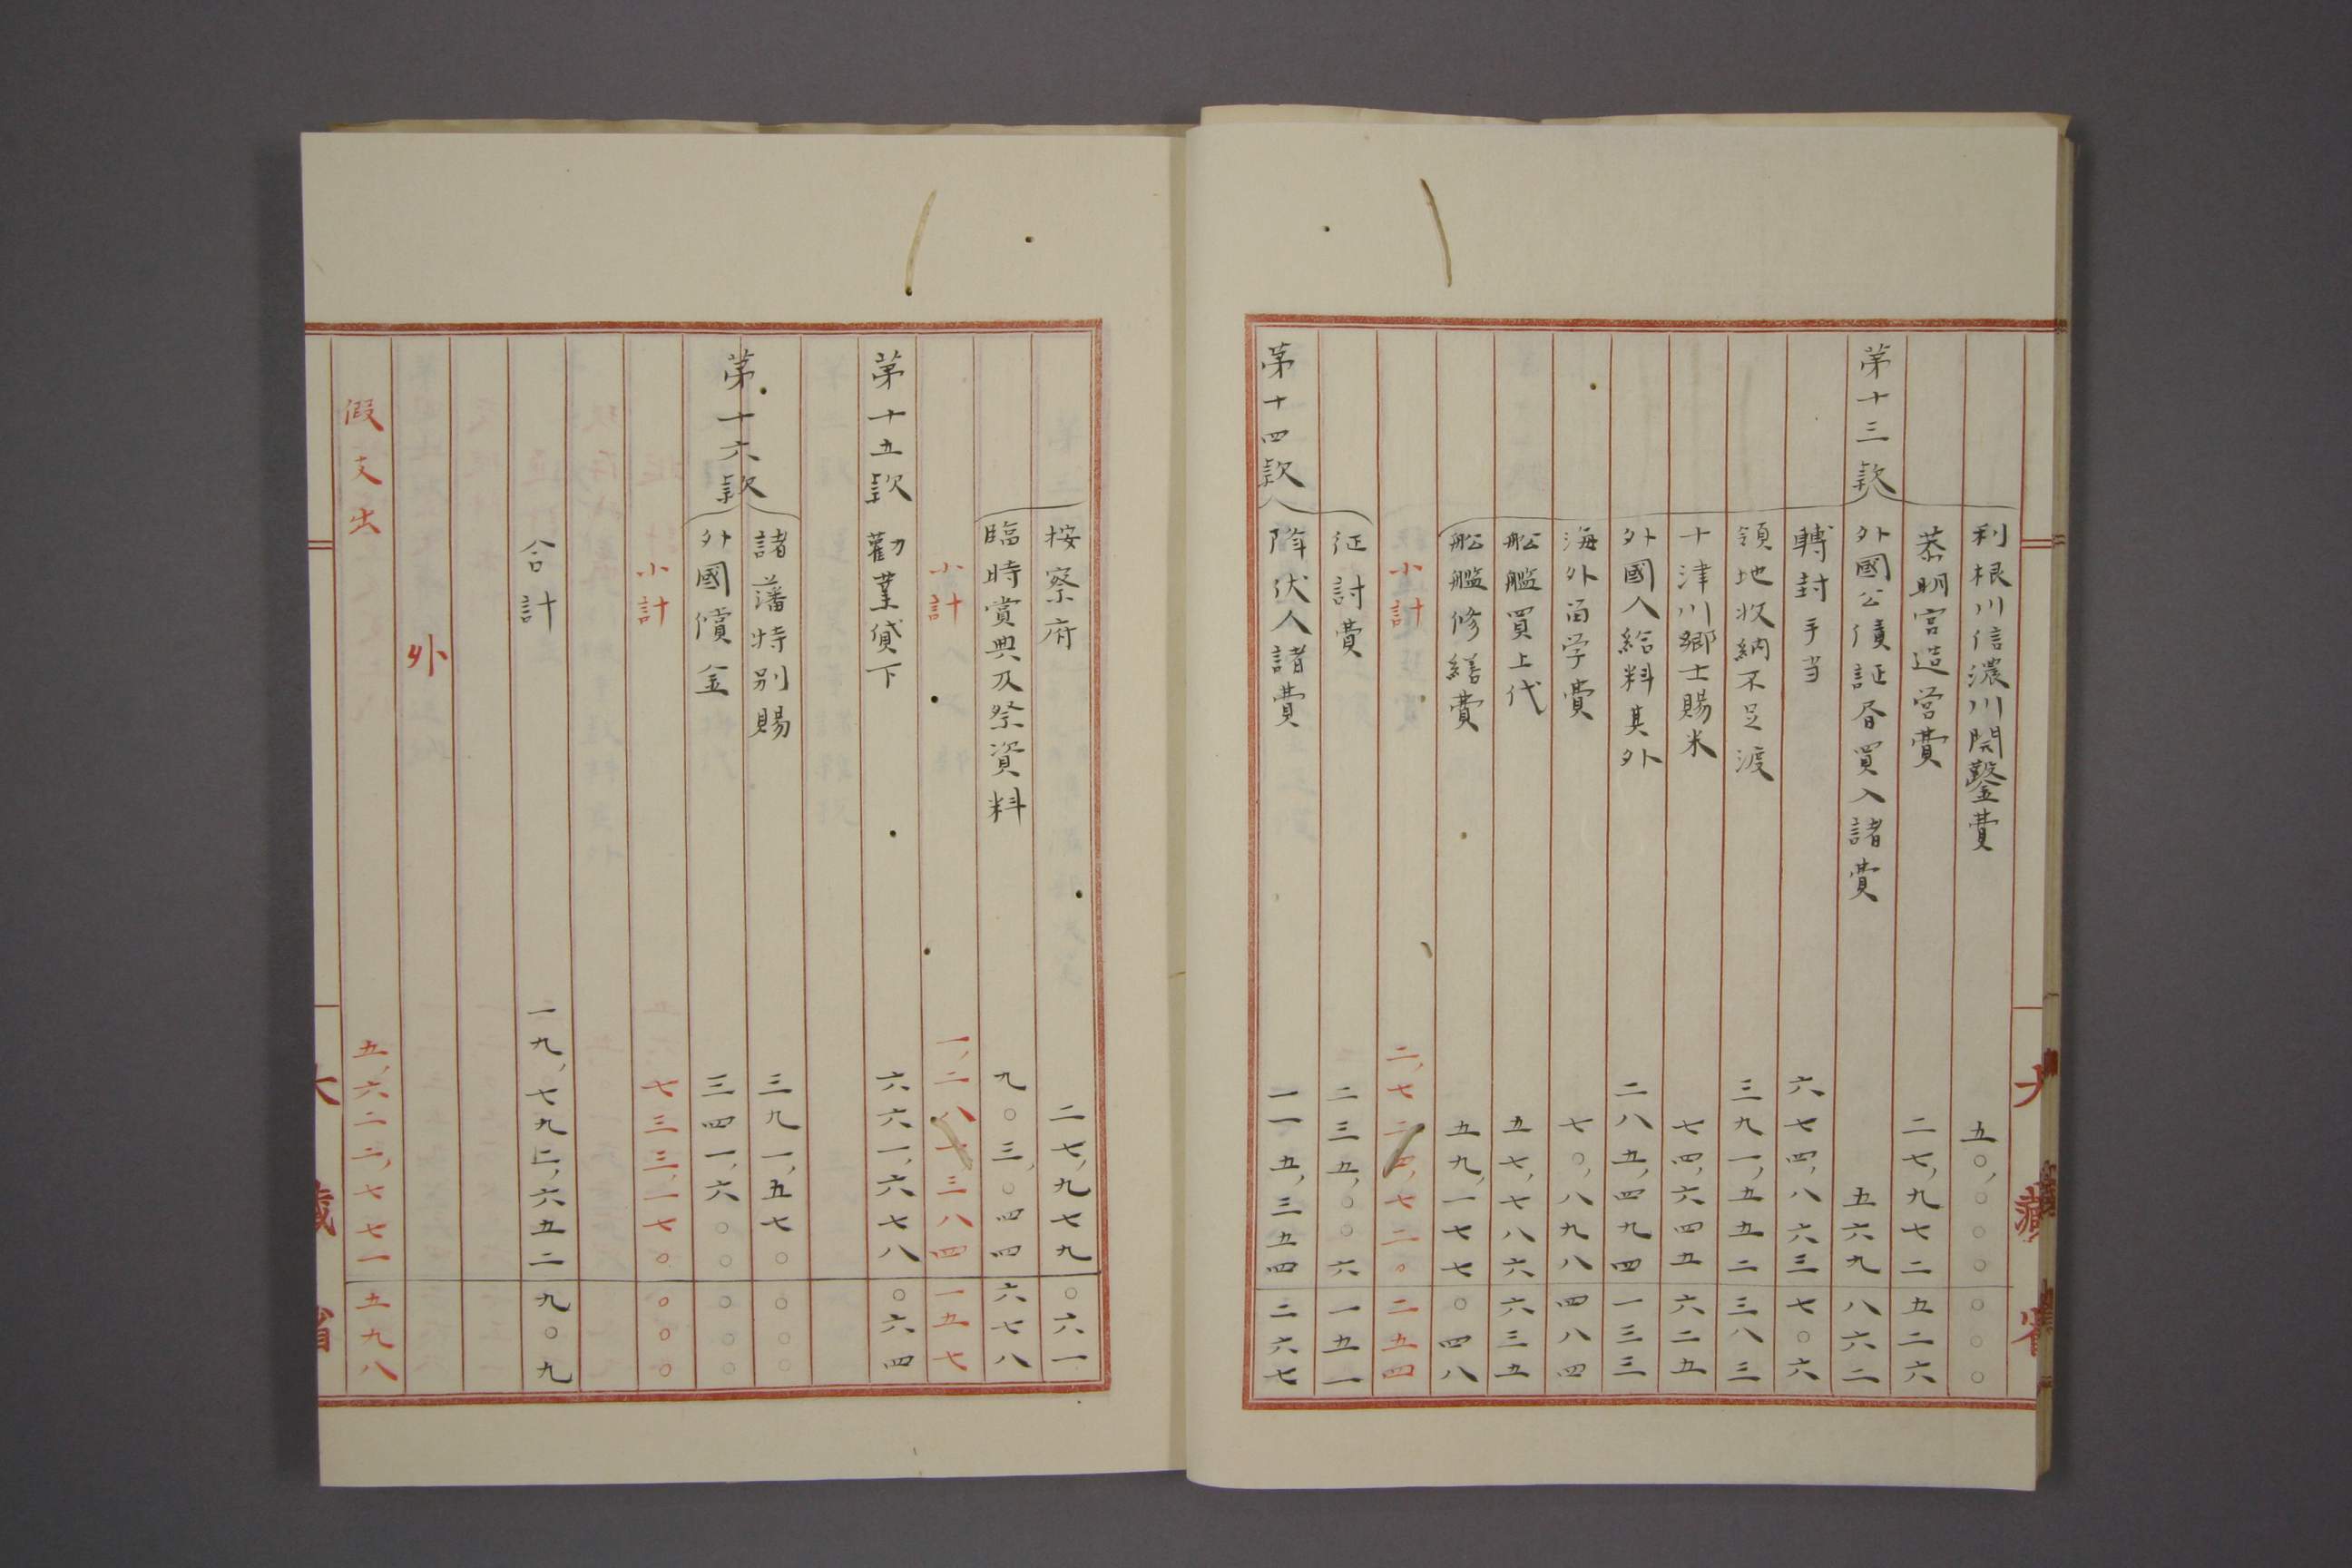 利根川信濃川開鑿費 五〇,〇〇〇 〇〇〇
恭明宮造営費 二七,九七二 五二六
第十三款 外國公債証書買入諸費 五六九 八六二
轉封手当 六七四,八六三 七〇六
領地收納不足渡 三九一,五五二 三八三
十津川郷士賜米 七四,六四五 六二五
外國人給料其外 二八五,四九四 一三三
海外留学費 七〇,八九八 四八四
船艦買上代 五七,七八六 六三五
船艦修繕費 五九,一七七 〇四八
小計 二,七二四,七二〇 二五四
征討費 二三五,〇〇六 一五一
第十四款 降伏人諸費 一一五,三五四 二六七
大藏省
按察府 二七,九七九 〇六一
臨時賞典及祭資料 九〇三,〇四四 六七八
小計 一,二八一,三八四 一五七
第十五款 勸業貸下 六六一,六七八 〇六四
諸藩特別賜 三九一,五七〇 〇〇〇
第十六款 外國償金 三四一,六〇〇 〇〇〇
小計 七三三,一七〇 〇〇〇
合計 一九,七九二,六五二 九〇九
外
假支出 五,六二二,七七一 五九八
大藏省